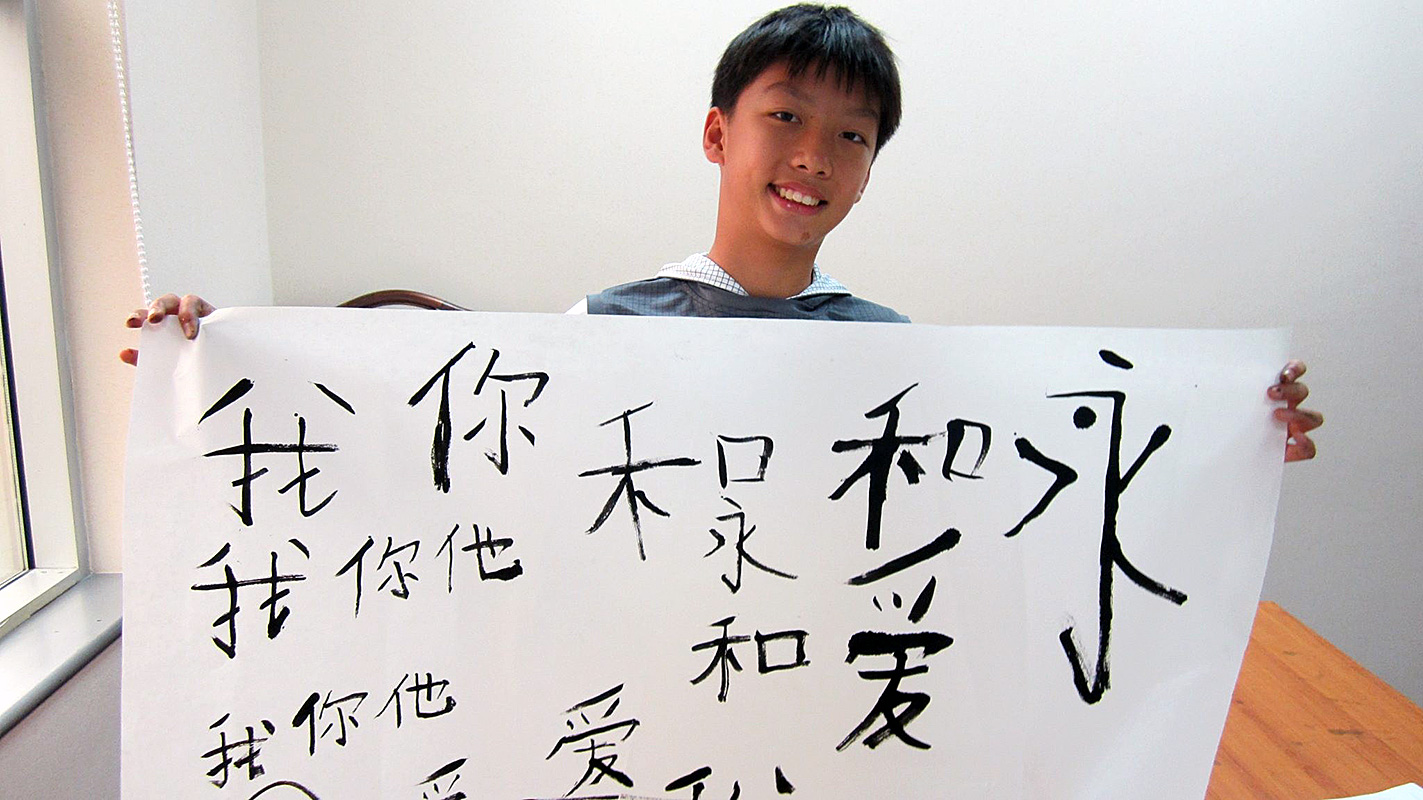 我 你 和 和 永
我 你 他 永
和 爱
我 你 他 爱